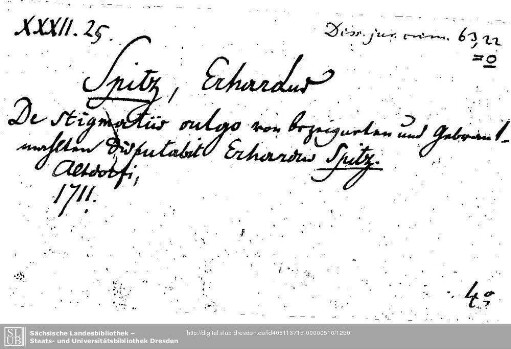 XXXII. 25.
Diss. jur. crim. 63,22
=0
Spitz, Erhardus
De stigmatiis vulgo von bezeigneten und Gebrant-
mahlten disputabit Erhardus Spitz.
Altdorfi,
1711.
4°
SLUB
Sächsische Landesbibliothek –
Staats- und Universitätsbibliothek Dresden